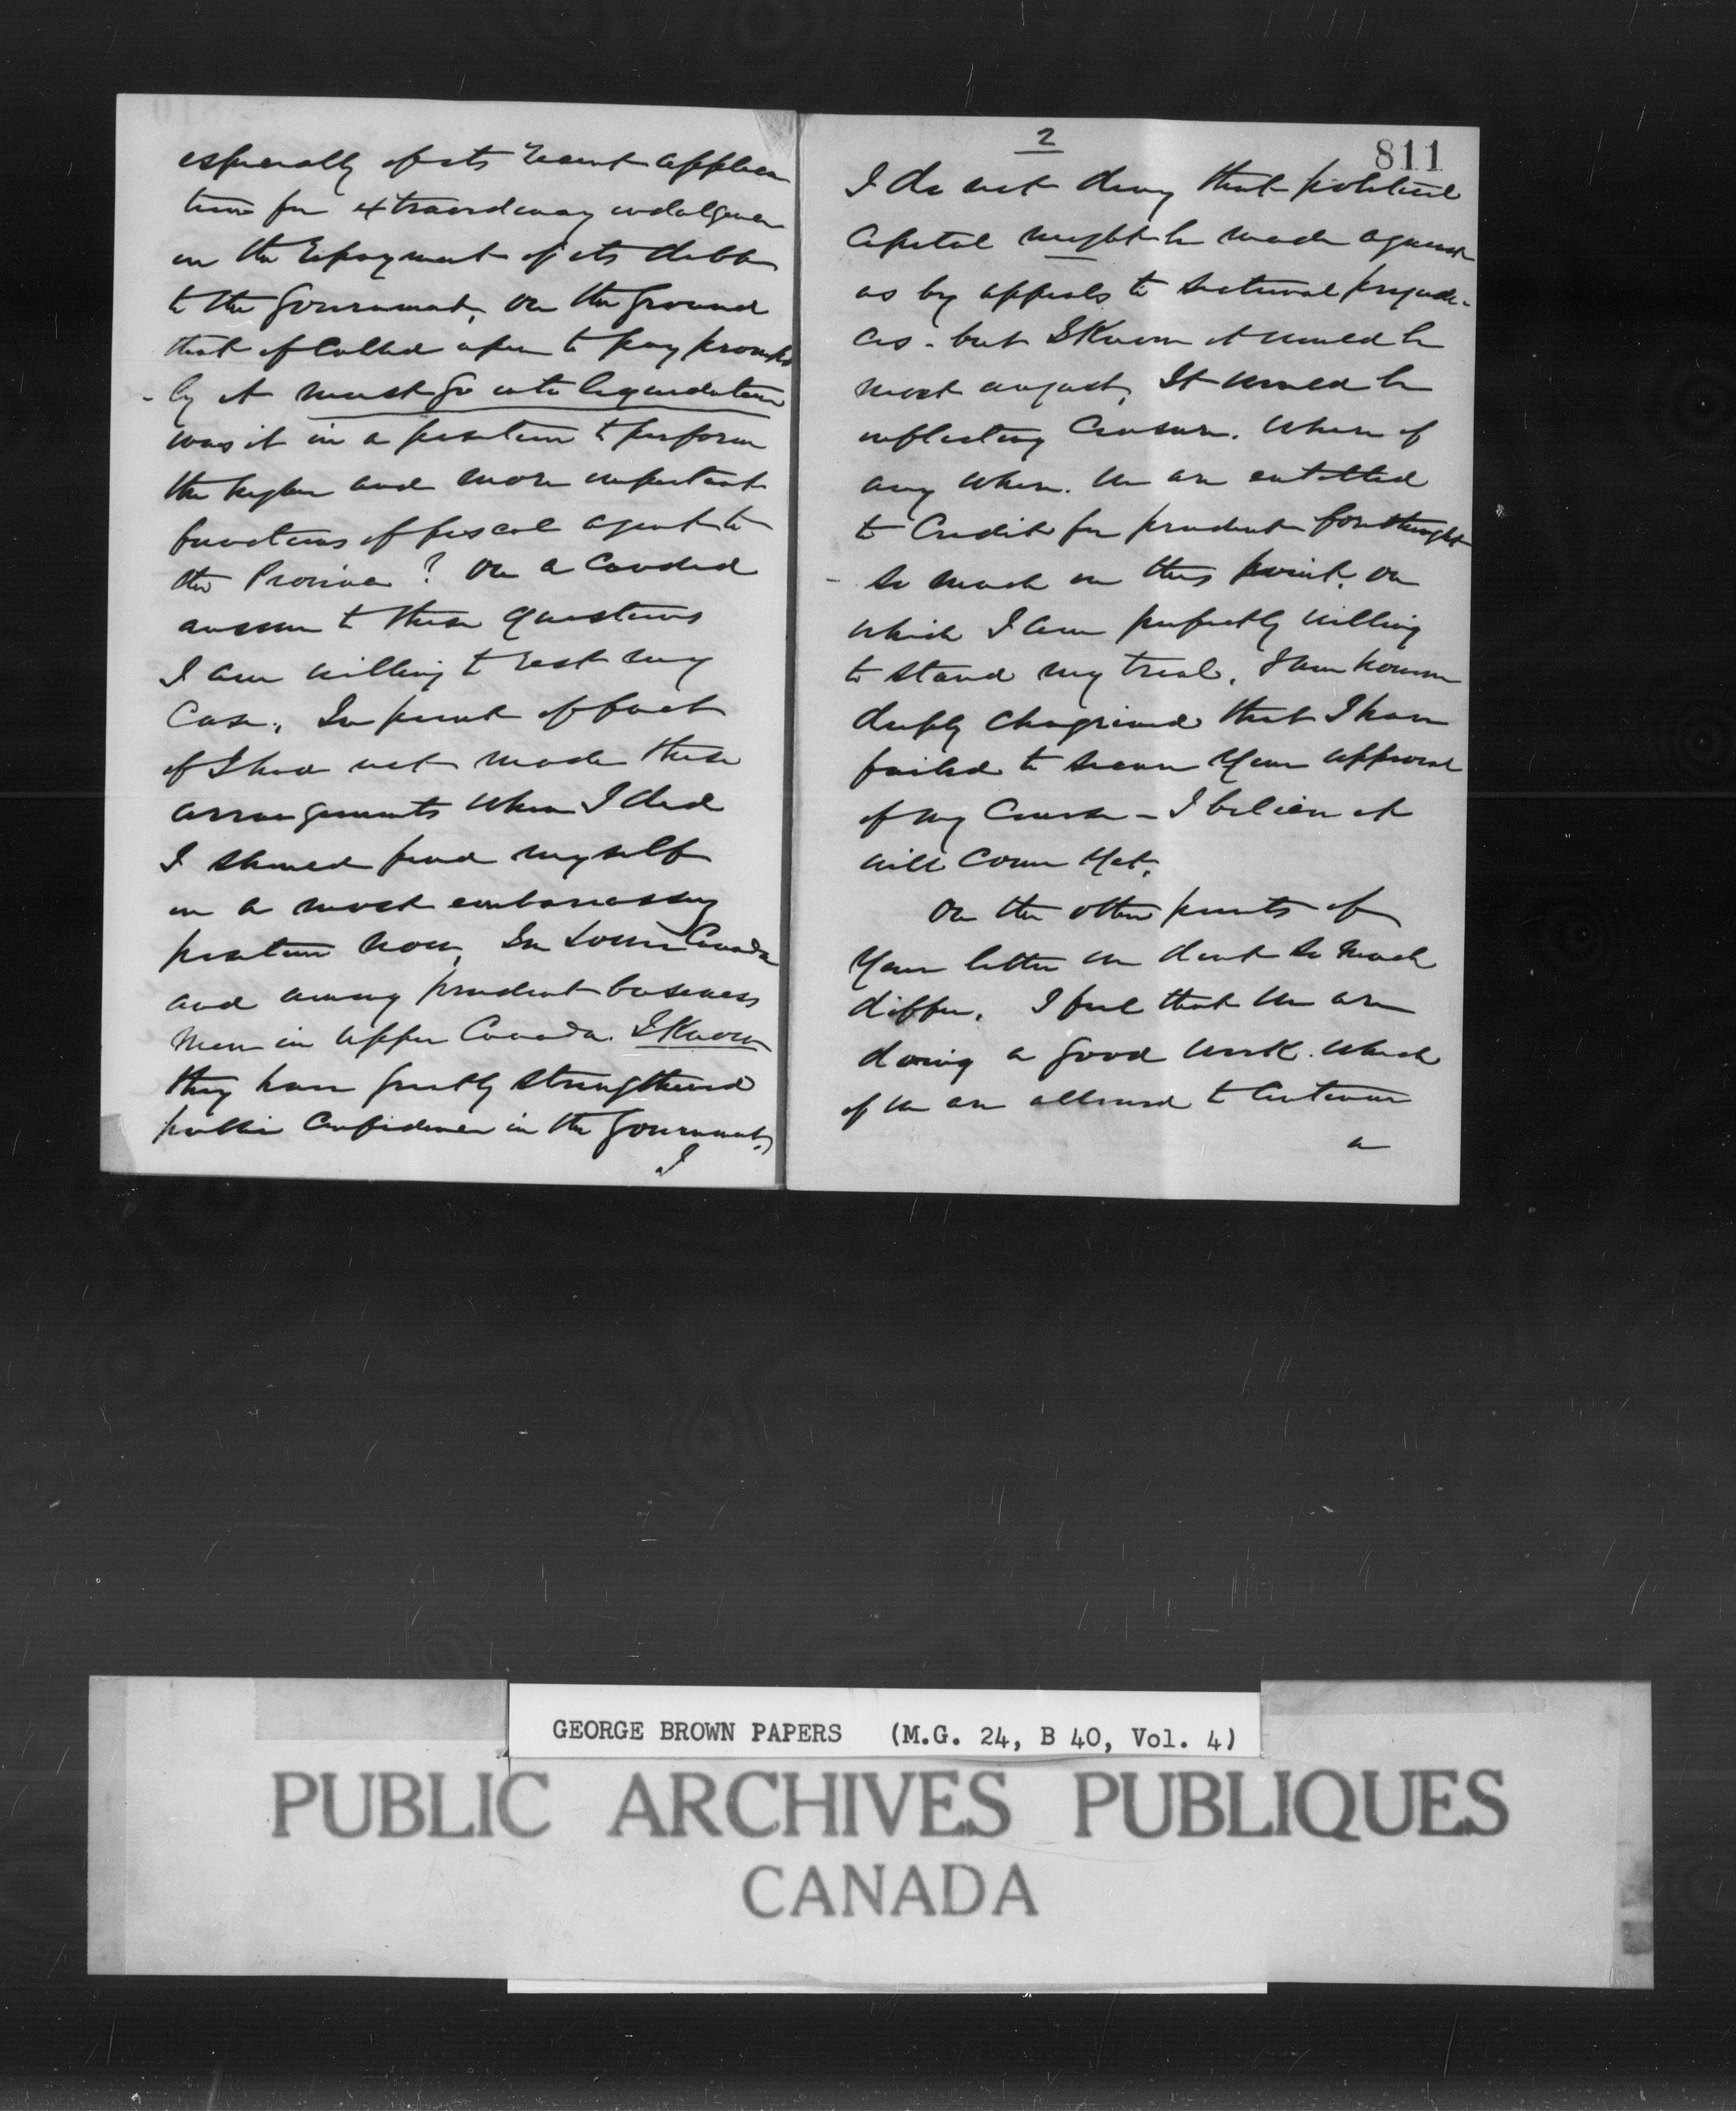 especially of its recent applica
tion for extraordinary indulgence
in the repayment of its debt
to the Government, on the ground
that if called upon to pay prompt
- ly it must go into liquidation
was it in a position to perform
the higher and more important
functions of fiscal agent to
the Province? On a candid
answer to these questions
I am willing to rest my
case. In point of fact
if I had not made these
arrangements when I did
I should find myself
in a most embarrassing
position now. In Lower Canada
and among prudent business
men in Upper Canada. I know
they have greatly strengthened
public confidence in the Government.
I
2
811
I do not deny that political
capital might be made against
us by appeals to sectional prejudi-
ces - but I know it would be
most unjust. It would be
inflicting censure. When if
any when. we are entitled
to credit for prudent forethought
- So much on this point. on
which I am perfectly willing
to stand my trial. I am however
deeply chagrined that I have
failed to secure your approval
of my course - I believe it
will come yet.
On the other points of
your letter we dont so much
differ. I feel that we are
doing a good work. which
if we are allowed to continue
a
GEORGE BROWN PAPERS (M.G. 24, B 40, Vol. 4)
PUBLIC ARCHIVES PUBLIQUES
CANADA